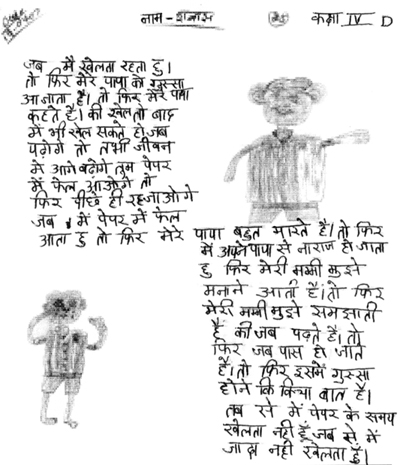 नाम - शनास
25
कक्षा IV D
जब मै खेलता रहता हु।
तो फिर मेरे पापा को गुस्सा
आ जाता है। तो फिर मेरे पापा
कहते है। की खेल तो बाद
में भी खेल सकते हो जब
पढ़ोगे तो तभी जीवन
मे आगे बढ़ोगे तुम पेपर
में फेल आओगे तो
फिर पीछे ही रह जाओगे
जब में पेपर में फेल
आता हु तो फिर मेरे पापा बहुत मारते है। तो फिर
में अपने पापा से नाराज हो जाता
हु फिर मेरी मम्मी मुझे
मनाने आती है। तो फिर
मेरी मम्मी मुझे समझाती
है की जब पढ़ते है। तो
फिर जब पास हो जाते
है। तो फिर इसमें गुस्सा
होने कि किया बात है।
तब से में पेपर के समय
खेलता नही हूँ जब से में
जादा नही खेलता हूँ।